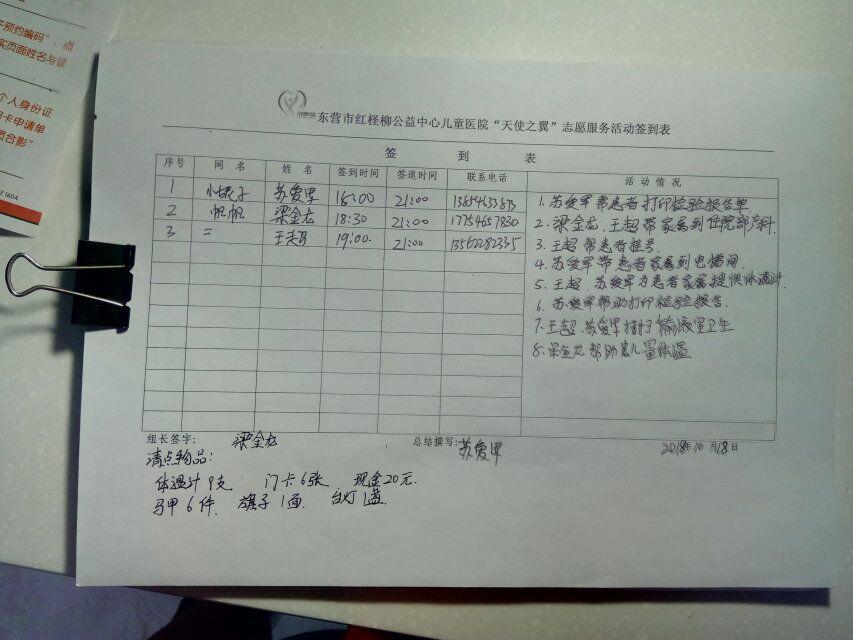 子预约编码”，点
实页面姓名与证
个人身份证
卡申请单
员合影”
东营市红柽柳公益中心儿童医院“天使之翼”志愿服务活动签到表
签 到 表
序号 网 名 姓 名 签到时间 签退时间 联系电话 活 动 情 况
1 苏爱军 18:00 21:00
2 帆帆 梁金龙 18:30 21:00 17754657830
3 = 王超 19:00. 21:00 13562282335
1. 苏爱军带患者打印检验报告单
2. 梁金龙、王超带家属到住院部产科.
3. 王超帮患者挂号.
4. 苏爱军带患者家属到电梯间.
5. 王超、苏爱军为患者家属提供体温计.
6. 苏爱军帮助打印检验报告.
7. 王超、苏爱军打扫输液室卫生
8. 梁金龙帮助患儿量体温
组长签字: 梁金龙 总结撰写: 苏爱军 2018年10月18日
清点物品:
体温计9支 门卡6张 现金20元.
马甲6件. 旗子1面 台灯1盏